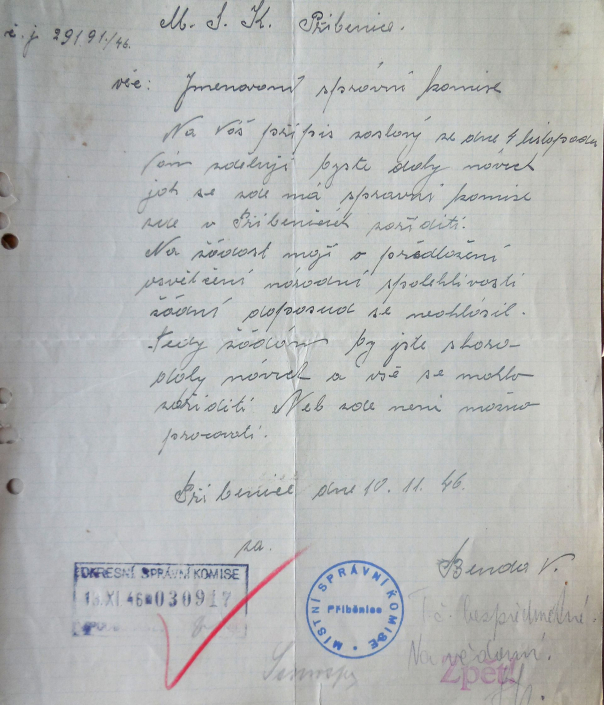 M. S. K. Přibenice.
č. j. 29191/46.
věc: Jmenovaní správní komise
Na Váš přípis zaslaný ze dne 4 listopada
Vám zděluji byste daly návrch
jak se zde má spravní komise
zde v Přibenicích zařídití.
Na žádost mojí o předložení
osvětčení národní spolehlivosti
žádní doposud se neohlásil.
Tedy žádám by jste sbora
daly návrch a vše se mohlo
zařídití. Neb zde neni možno
pracovati.
Přibenicě dne 10. 11. 46.
za.
Benda V.
OKRESNÍ SPRÁVNÍ KOMISE
XI. 46 030917
MÍSTNÍ SPRÁVNÍ KOMISE
Přiběnice
T. č. bezpředmětné.
Na vědomí.
Zpět!